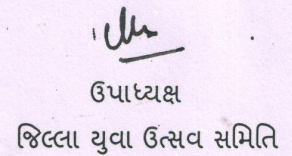 ઉપાધ્યક્ષ
જિલ્લા યુવા ઉત્સવ સમિતિ